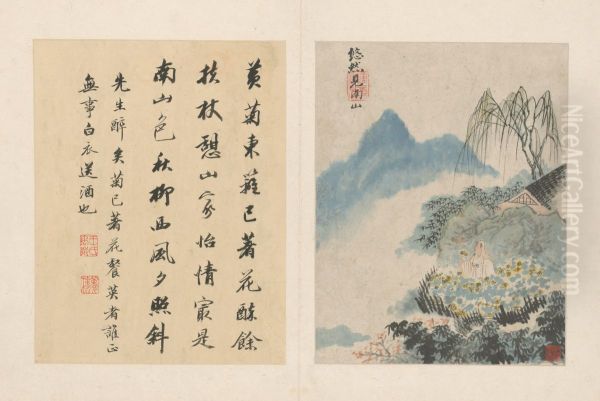 悠然見南山
黃菊東籬已著花醉餘
扶杖憩山家怡情㝡是
南山色秋柳西風夕照斜
先生醉矣菊已著花餐英者誰正
無事白衣送酒也
NiceArtGallery.com